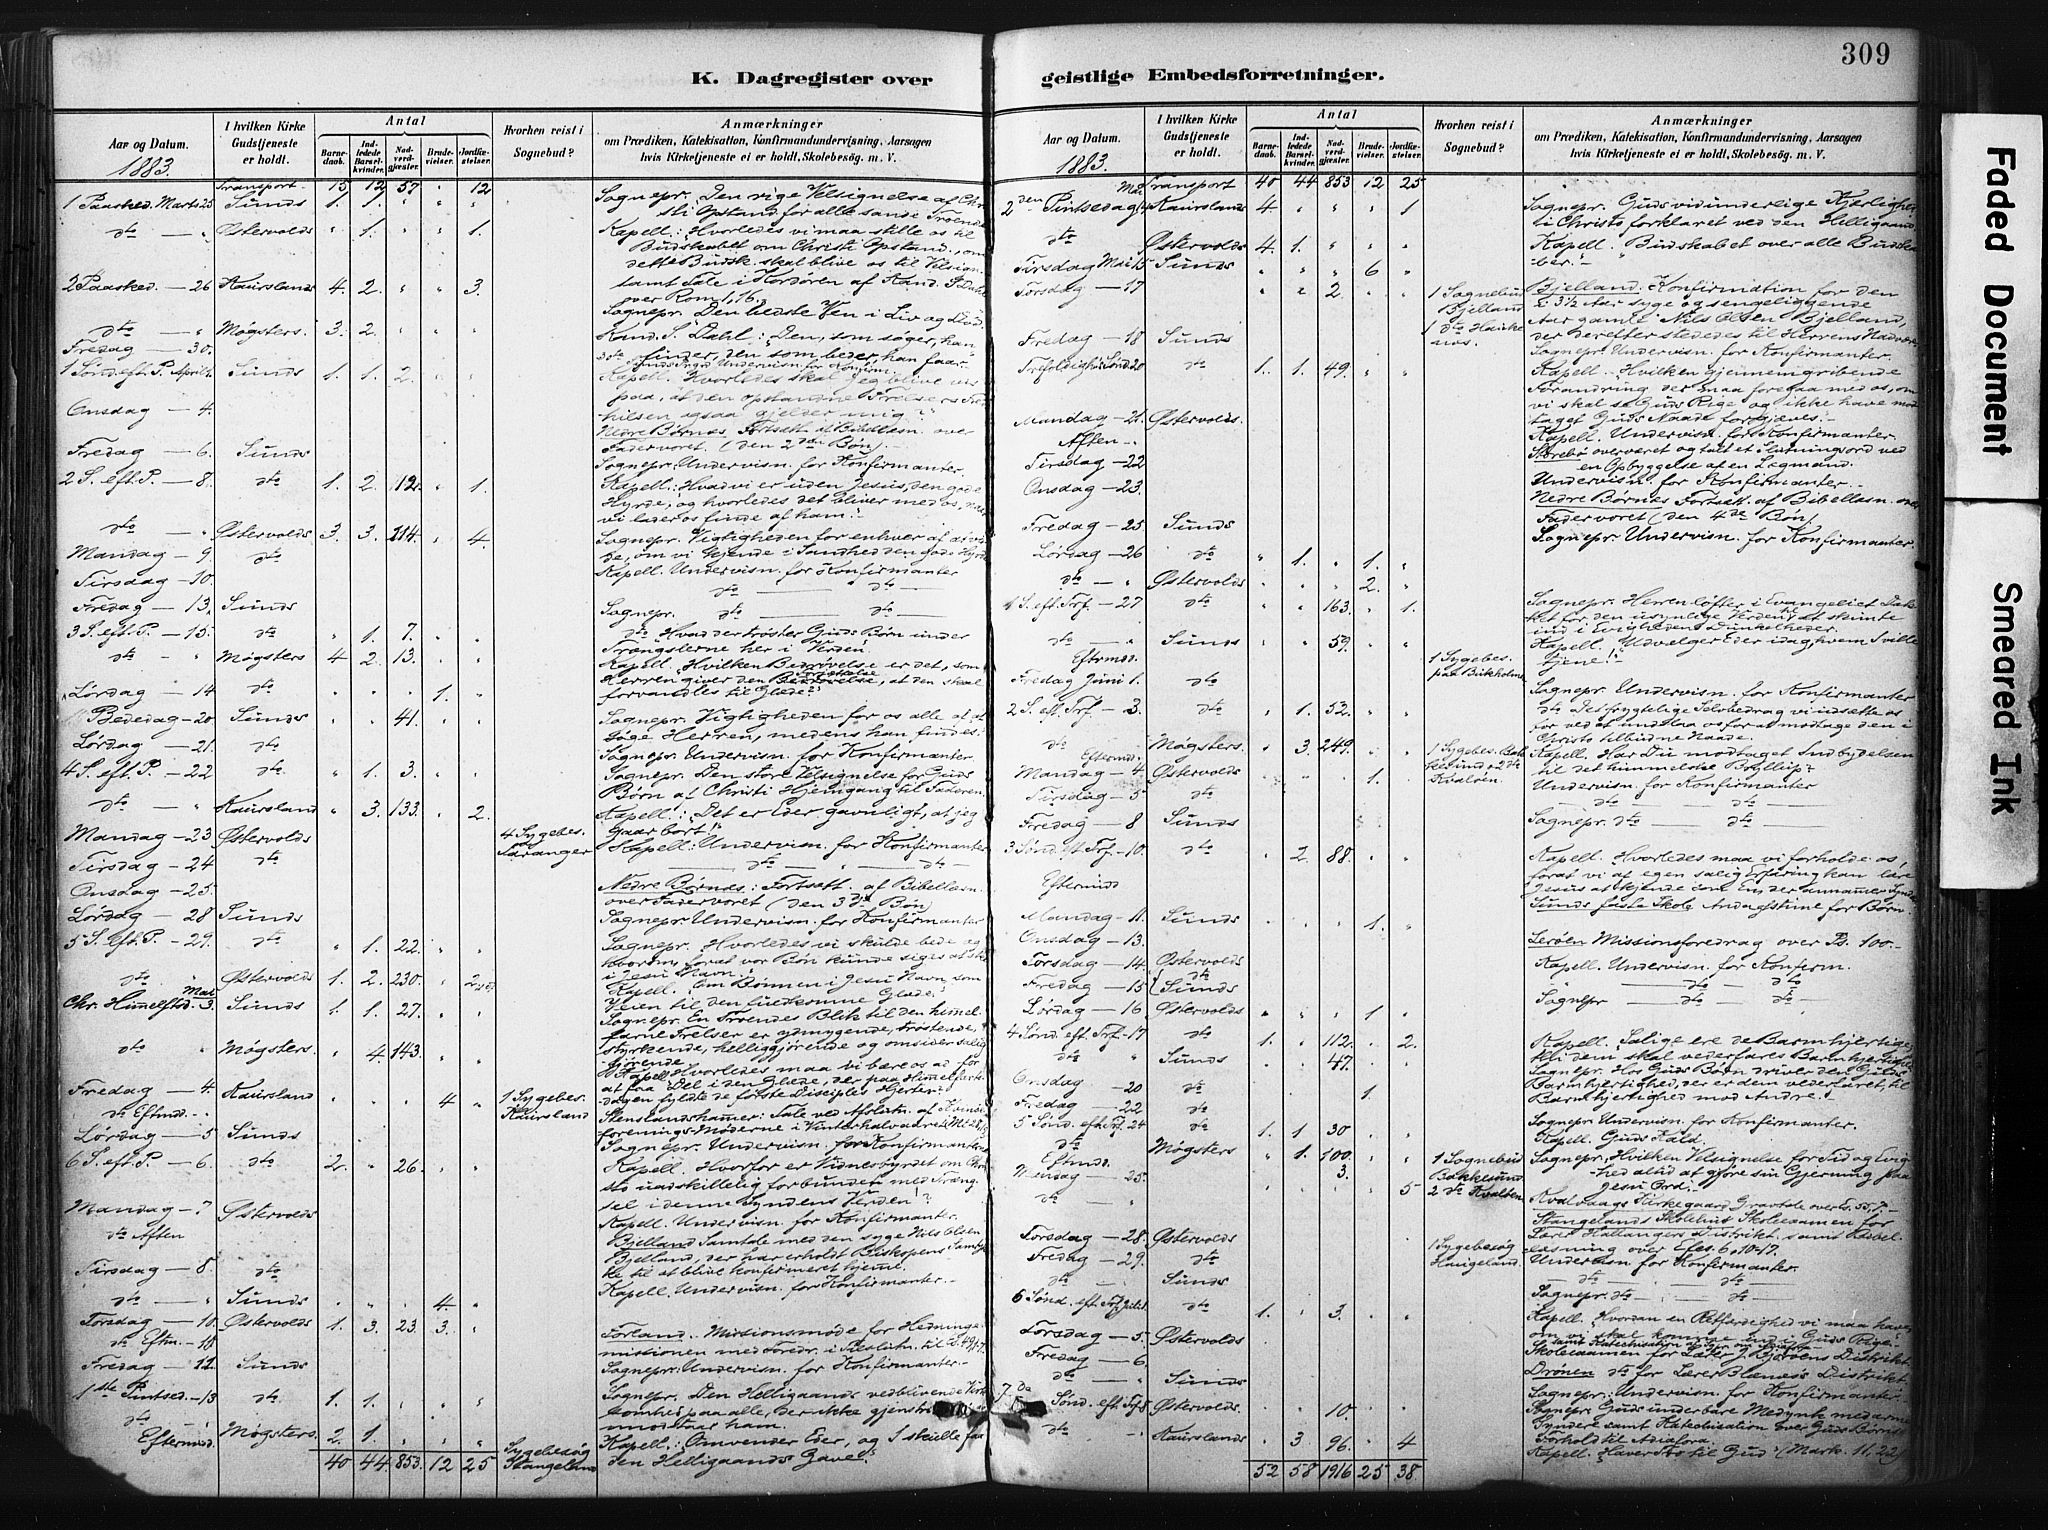 309
K. Dagregister over
geistlige Embedsforretninger.
Aar og Datum.
1883.
I hvilken Kirke Gudstjeneste er holdt.
Antal
Barnedaab.
Indledede Barselkvinder.
Nadverdgjæster.
Brudevielser.
Jordfæstelser.
Hvorhen reist i Sognebud?
Anmærkninger
om Prædiken, Katekisation, Konfirmandundervisning, Aarsagen
hvis Kirketjeneste ei er holdt, Skolebesøg. m. V.
Transport 15 12 57 " 12
1 Paasked. Marts 25 Sunds 1. 1. " " " Sognepr. Den rige Velsignelse af Christi Opstand for alle sande Troende
dto " Østervolds " 1. " " 1. Kapell.: Hvorledes vi maa stille os til
Budskabet om Christi Opstand, om
dette Budsk. skal blive os til Velsign.
samt Tale i Kordøren af Kand. S. Dahl
over Rom 1, 16.
2 Paasked. — 26 Kaurslands 4. 2. " " 3. Sognepr. Den bedste Ven i Liv og Død
dto " Møgsters. 3. 2. " " " Kand. S. Dahl: "Den, som søger, han
finder, den som beder, han faar
Fredag — 30. Sunds Sognepr. Undervisn. for Konfirm.
1 Sønd. eft. P. April 1. Sunds 1. 1. 2. " " Kapell. Hvorledes skal jeg blive vis
paa, at den opstandne Frelsers Fredhilsen ogsaa gjelder mig?"
Onsdag — 4. Nedre Børnes Fortsatt. af Bibellæsn. over
Fadervoret (den 2den Bøn).
Fredag — 6. Sunds Sognepr. Undervisn. for Konfirmanter
2 S. eft. P. — 8. dto 1. 2. 12. " 1. Kapell.: Hvad vi er uden Jesus, den gode
Hyrde, og hvorledes det bliver med os, naar
vi lader os finde af ham".
dto " Østervolds 3. 3. 214. " 4. Sognepr. Vigtigheden for enhver af at vide, om vi kjende i Sandhed den gode Hyrde
Mandag — 9 dto Kapell. Undervisn. for Konfirmanter
Tirsdag — 10. dto dto
Fredag — 13. Sunds Sognepr. dto dto
3 S. eft. P. — 15. dto " 1. 7. " " dto Hvad der trøster Guds Børn under
Trængslerne her i Verden.
dto " Møgsters 4 2. 13. " " Kapell. Hvilken Bedrøvelse er det, som
Herren giver den Forjættelse, at den skal
forvandles til Glæde?"
Lørdag — 14 dto " " " 1. "
Bededag — 20 Sunds " " 41. " " Sognepr. Vigtigheden for os alle af at
søge Herren, medens han findes.
Lørdag — 21. dto Sognepr. Undervisn. for Konfirmanter
4 S. eft. P. — 22 dto " 1. 3. " " Sognepr. Den store Velsignelse for Guds
Børn af Christi Hjemgang til Faderen.
dto " Kaursland " 3. 133. " 2. Kapell.: "Det er Eder gavnligt, at jeg
gaar bort!"
Mandag — 23 Østervolds 4 Sygebes. Kapell.: Undervisn. for Konfirmanter
Tirsdag — 24 dto dto " dto
Onsdag — 25. Nedre Børnes: Fortsatt. af Bibellæsn.
over Fadervoret (den 3die Bøn)
Lørdag — 28 Sunds Sognepr. Undervisn. for Konfirmanter
5 S. eft. P. — 29. dto " 1. 22. " " Sognepr. Hvorledes vi skulde bede og
hvorom, forat vor Bøn kunde siges at ske
i Jesu Navn."
dto " Østervolds 1. 2. 230. " 2 Kapell. "Om Bønnen i Jesu Navn som
Veien til den fuldkomne Glæde.
Chr. Himmelsfd. Mai 3. Sunds 1. 1. 27. " " Sognepr. En Troendes Blik til den himmelfarne Frelser er ydmygende, trøstende,
styrkende, helliggjørende og omsider saliggjørende
dto " Møgsters. " 4. 143. " " Kapell. Hvorledes maa vi bære os ad for
at faa Del i den Glæde, der paa Himmelfartsdagen fyldte de første Disciples Hjerter.
Fredag — 4. Kaursland " " " 4 " 1 Sygebes. Kaursland
dto Eftmd. Stenslandshamer: Tale ved Afslutn. af Kvindeforenings-Møderne i Vinterhalvaaret
Lørdag — 5 Sunds Sognepr. Undervisn. for Konfirmanterne
6 S. eft. P. — 6. dto 2. " 26. " " Kapell. Hvorfor er Vidnesbyrdet om Christo uadskillelig forbunden med Trængsel i denne Syndens Verden"?
Mandag — 7 Østervolds Kapell. Undervisn. for Konfirmanter.
dto Aften Bjelland Samtale med den syge Nils Olsen
Bjelland, der har erholdt Biskopens Samtykke til at blive konfirmeret hjemme.
Tirsdag — 8. dto Kapell. Undervisn. for Konfirmanter.—
dto " Sunds " " " 4. "
Torsdag — 10. Østervolds 1. 3. 23. 3. "
dto Eftm. — 10 Forland.. Missionsmøde for Hedningemissionen med Foredr. i Tilslutn. til Es. 49,1-7.
Fredag — 11. Sunds Sognepr. Undervisn. for Konfirmanter.—
1ste Pintsed. — 13 dto 1. 1. " " " Sognepr. Den Helligaands vedblivende Virksomhed paa alle, der ikke
modstaar ham.
dto Eftermd. Møgsters. 2. 1. " " " Sygebesøg Stangeland Kapell.: Omvender Eder, og I skulle faa
den Helligaands Gave".
40 44 853. 12 25
Aar og Datum.
1883.
I hvilken Kirke Gudstjeneste er holdt.
Antal
Barnedaab.
Indledede Barselkvinder.
Nadverdgjæster.
Brudevielser.
Jordfæstelser.
Hvorhen reist i Sognebud?
Anmærkninger
om Prædiken, Katekisation, Konfirmandundervisning, Aarsagen
hvis Kirketjeneste ei er holdt, Skolebesøg. m. V.
Transport 40 44 853 12 25
2den Pintsedag Mai 14 Kaurslands 4. " " " 1 Sognepr. Guds vidunderlige Kjærlighed
i Christo forklaret ved den Helligaand.
dto Østervolds 4. 1. " " " Kapell. "Budskabet over alle Budskaber."—
Tirsdag Mai 15 Sunds " " " 6 "
Torsdag — 17 " " 2. " " 1 Sognebud Bjelland Bjelland: Konfirmation for den
i 3½ Aar syge og sengeliggende
Aar gamle Nils Olsen Bjelland,
der derefter stededes til Herrens Nadvere
Fredag — 18 Sunds Sognepr. Undervisn. for Konfirmanter.
Trefoldigheds Sønd. 20 dto 1. 1. 49. " " Kapell. "Hvilken gjennemgribende
Forandring der maa foregaa med os, om
vi skal se Guds Rige og ikke have modtaget Guds Naade forgjæves."
Mandag — 21. Østervolds. Kapell. Undervisn. for Konfirmanter.
Aften " Storebø overværet og talt et Slutningsord ved
en Opbyggelse af en Lægmand.
Tirsdag — 22 Undervisn. for Konfirmanter.—
Onsdag — 23. Nedre Børnes Fortsatt. af Bibellæsn. over
Fadervoret (den 4de Bøn)
Fredag — 25 Sunds Sognepr. Undervisn. for Konfirmanter.
Lørdag — 26 dto " 1. " 1. "
dto — " Østervolds " " " 2. "
1 S. eft. Trf. — 27 dto " " 163. " 1. Sognepr. Herren løfter i Evangeliet Dækket for den usynlige Verden, at skimte
ind i Evighedens Dunkelheder.
dto " Sunds " " 59. " " Kapell. Udvælger Eder idag, hvem I ville
tjene!"
Eftermd. 1 Sygebes. paa Birkholmen
Fredag Juni 1. dto Sognepr. Undervisn. for Konfirmanter
2 S. eft. Trf. — 3. dto " 1. 52. " " dto Det frygtelige Selvbedrag vi udsætte os
for ved at undslaa os for at modtage den i
Christo tilbudne Naade.
dto Eftermd. Møgsters. " 3. 249. " " Kapell. Har Du modtaget Indbydelsen
til det himmelske Bryllup?"
Mandag — 4 Østervolds " " " 1. " Undervisn. for Konfirmanter
Tirsdag — 5 dto dto dto
Fredag — 8 Sunds Sognepr. dto dto
3 Sønd. eft. Trf. — 10. dto " 2. 88. " " Kapell. Hvorledes maa vi forholde os,
forat vi af egen salig Erfaring kan lære
Jesus at kjende som En, der annammer Syndere
Eftermd Sunds faste Skole Andagtstime for Børn.
Mandag — 11. Sunds " " " 1. "
Onsdag — 13. Lerøen Missionsforedrag over Ps. 100.—
Torsdag — 14. Østervolds Kapell. Undervisn. for Konfirm.
dto dto dto
Fredag — 15 Sunds Sognepr dto dto
Lørdag — 16. Østervolds " " " 1. "
4 Sønd. eft. Trf. — 17 dto 1. " 112. " 2. Kapell. Salige ere de Barmhjertige,
thi dem skal vederfares Barmhjertighed
dto " Sunds " " 47. " " Sognepr. Hos Guds Børn driver den Guds
Barmhjertighed, der er dem vederfaret, til
Barmhjertighed mod Andre.
Onsdag — 20 dto 1.
Fredag — 22 dto Sognepr Undervisn. for Konfirmanter.
5 Sønd. eft. Trf. 24 dto 1. 1 30 " " Kapell. Guds Kald.
dto Eftmd. Møgsters " 1. 100. " " Sognepr.: Hvilken Velsignelse for Tid og Evighed altid at gjøre sin Gjerning paa
Jesu Ord.
Mandag — 25. 3. 1 Sognebud Bakkesund 2 dto
dto " 5 Kvalvaags Kirkegaard Gravtale over Es. 55, 7—
Stangelands Skolehus Skoleexamen for
Lærer Hallangers Distrikt samt Bibellæsning over Efes. 6, 10-17.
Torsdag — 28. Østervolds Undervisn. for Konfirmanter.
Fredag — 29. dto 1 Sygebesøg Haugeland. dto dto
dto — " Sunds Sognepr. dto dto
6 Sønd. eft. Trf. Juli 1. dto 1. " 3. " " Kapell. Hvordan en Retfærdighed vi maa have,
om vi skal komme ind i Guds Rige."
Torsdag — 5. Østervolds Skoleexamen for Lærer J. Bjørøens Distrikt
Fredag — 6. Drønen dto for Lærer Blænes's Distrikt.
dto — " Sunds Sognepr. Undervisn. for Konfirmanter
7 de Sønd. eft. Trf. 8 Østervolds " " 10. " " Sognepr. Guds underbare Medynk med arme
Syndere samt Katechisation over Guds Børns
Forhold til Adiafora.
dto " Kaurslands " 3 96. " 4 Kapell. "Haver Tro til Gud" (Mark. 11. 22)
52 58 1916 25 38
Faded Document
Smeared Ink